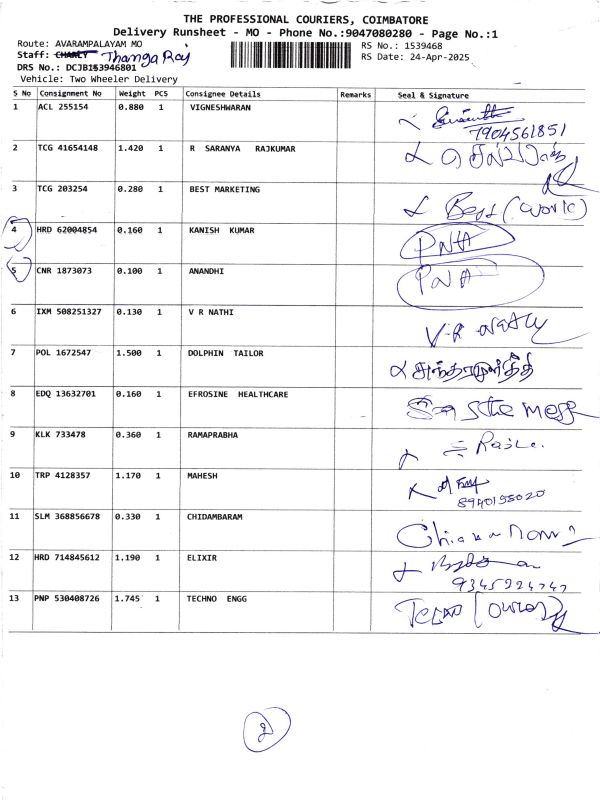 THE PROFESSIONAL COURIERS, COIMBATORE
Delivery Runsheet - MO - Phone No.:9047080280 - Page No.:1
Route: AVARAMPALAYAM MO
RS No.: 1539468
Staff: CHARLY Thanga Raj
RS Date: 24-Apr-2025
DRS No.: DCJB153946801
Vehicle: Two Wheeler Delivery
S No Consignment No Weight PCS Consignee Details Remarks Seal & Signature
1 ACL 255154 0.880 1 VIGNESHWARAN
7904561851
2 TCG 41654148 1.420 1 R SARANYA RAJKUMAR
3 TCG 203254 0.280 1 BEST MARKETING Best (work)
4 HRD 62004854 0.160 1 KANISH KUMAR PNA
5 CNR 1873073 0.100 1 ANANDHI PNA
6 IXM 508251327 0.130 1 V R NATHI V.R
7 POL 1672547 1.500 1 DOLPHIN TAILOR
8 EDQ 13632701 0.160 1 EFROSINE HEALTHCARE
9 KLK 733478 0.360 1 RAMAPRABHA
10 TRP 4128357 1.170 1 MAHESH
8940155020
11 SLM 368856678 0.330 1 CHIDAMBARAM
12 HRD 714845612 1.190 1 ELIXIR
9345224747
13 PNP 530408726 1.745 1 TECHNO ENGG
2